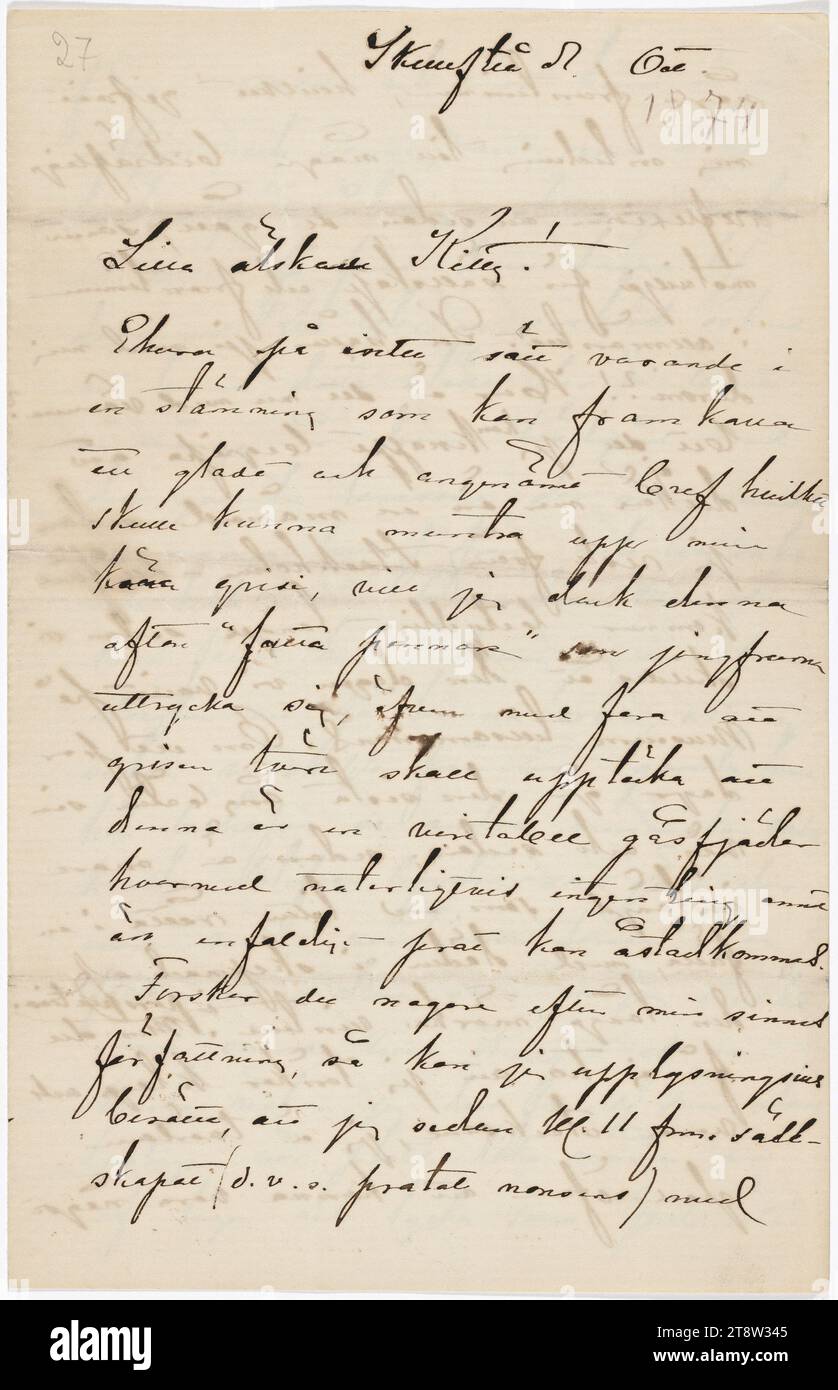 27
Skellefteå d. Oct.
1874
Lilla älskade Kitty!
Ehuru på intet sätt varande i
en stämning som kan framkalla
ett gladt och angenämt bref hvilket
skulle kunna muntra upp min
kära grisi, vill jag dock denna
afton "fatta pennan" som jungfrurna
uttrycka sig, äfven med fara att
grisen tvärt skall upptäcka att
denna är en veritabel gåsfjäder
hvarmed naturligtvis ingenting annat
än enfaldigt prat kan åstadkommas.
Forskar du någore efter min sinnes
författning, så kan jag upplysningsvis
berätta, att jag sedan kl. 11 fm. säll-
skapat (d.v.s. pratat nonsens) med
alamy
alamy
a
a
alamy
Image ID: 2T8W345
www.alamy.com